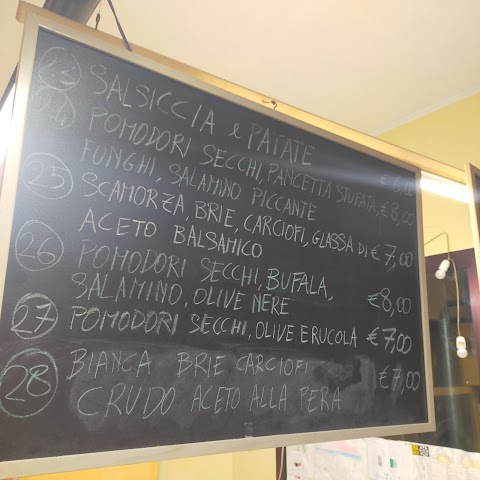 SALSICCIA e PATATE
24 POMODORI SECCHI, PANCETTA STUFATA, € 8,00
FUNGHI, SALAMINO PICCANTE
25 SCAMORZA, BRIE, CARCIOFI, GLASSA DI € 7,00
ACETO BALSAMICO
26 POMODORI SECCHI, BUFALA,
SALAMINO, OLIVE NERE € 8,00
27 POMODORI SECCHI, OLIVE E RUCOLA € 7,00
28 BIANCA BRIE CARCIOFI € 7,00
CRUDO ACETO ALLA PERA